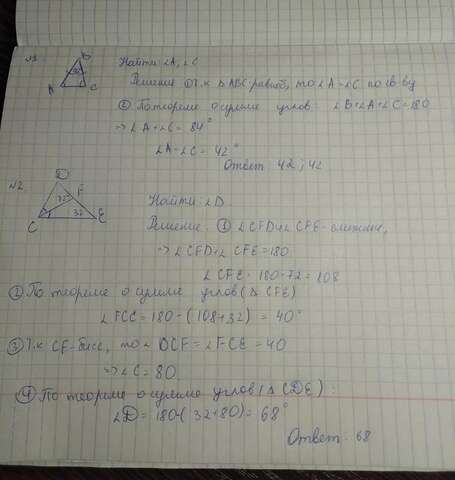 №1
B
A
C
Найти: ∠A, ∠C
Решение ① т.к ΔABC-равноб, то ∠A=∠C по св-ву
② По теореме о сумме углов: ∠B+∠A+∠C=180
⇒ ∠A+∠C= 84°
∠A=∠C= 42°
Ответ: 42; 42
№2
D
F
72
32
C
E
Найти: ∠D.
Решение: ① ∠CFD и ∠CFE-смежные,
⇒ ∠CFD+∠CFE=180
∠CFE= 180-72=108
② По теореме о сумме углов (ΔCFE)
∠FCC=180-(108+32) = 40°
③ Т.к CF-бисс, то ∠DCF=∠FCE=40
⇒ ∠C=80
④ По теореме о сумме углов (ΔCDE):
∠D=180-(32+80)=68°
Ответ: 68